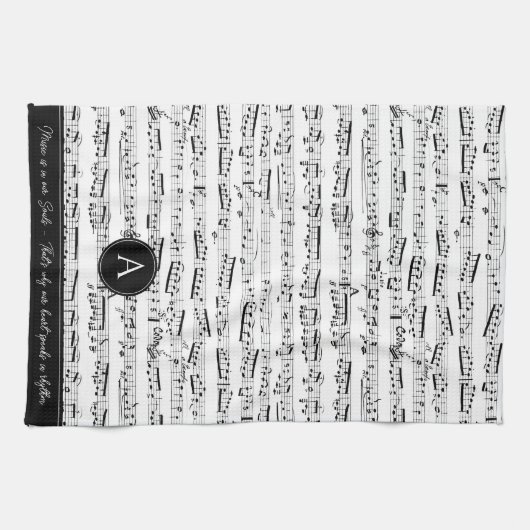 Music is in our Souls - That's why our heart speaks in rhythm
A